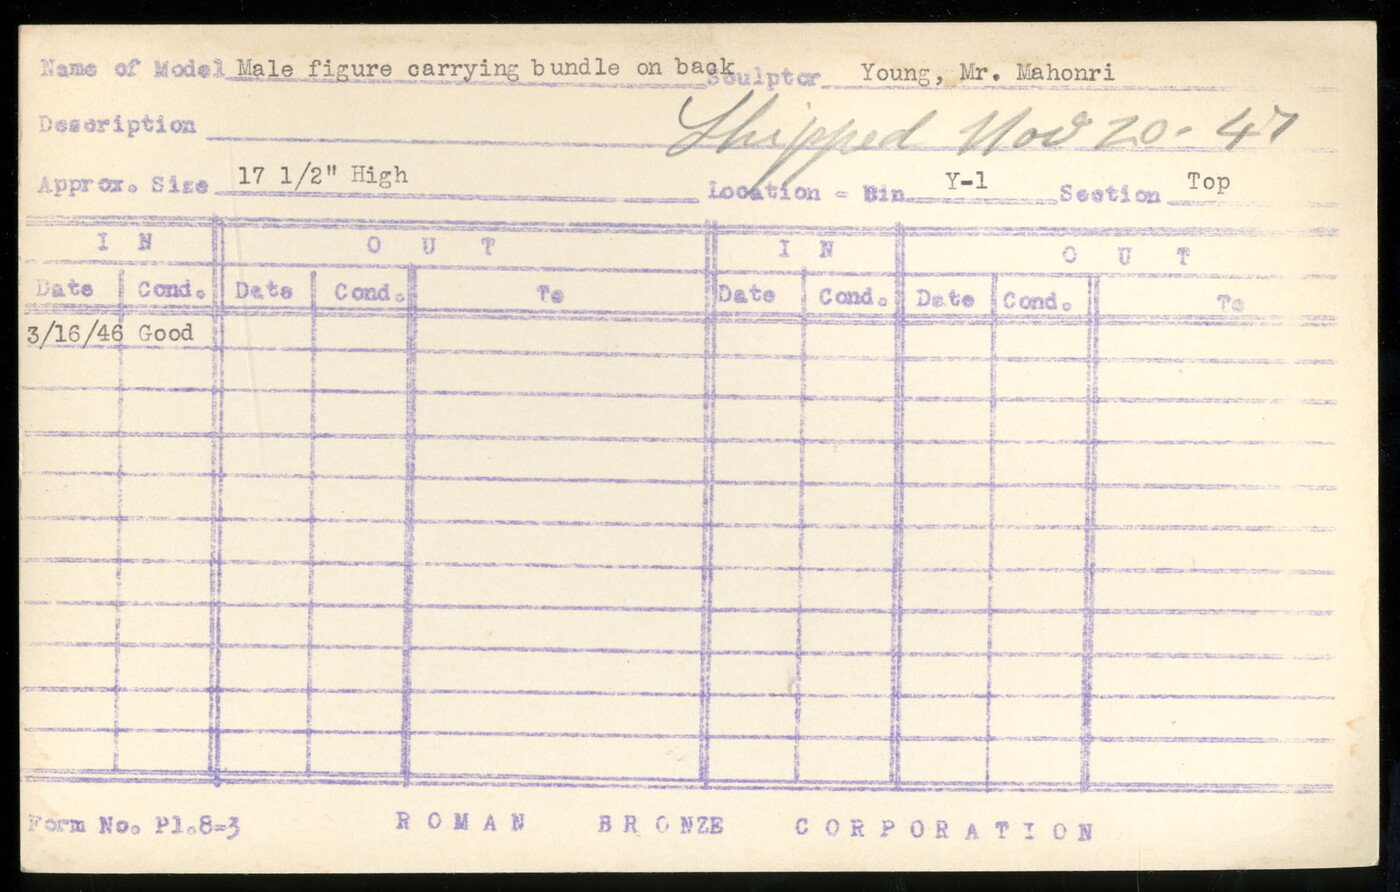 Name of Model Male figure carrying bundle on back Sculptor Young, Mr. Mahonri
Description Shipped Nov 20 - 47
Approx. Size 17 1/2" High Location - Bin Y-1 Section Top
I N O U T I N O U T
Date Cond. Date Cond. To Date Cond. Date Cond. To
3/16/46 Good
Form No. Pl.8-3 ROMAN BRONZE CORPORATION